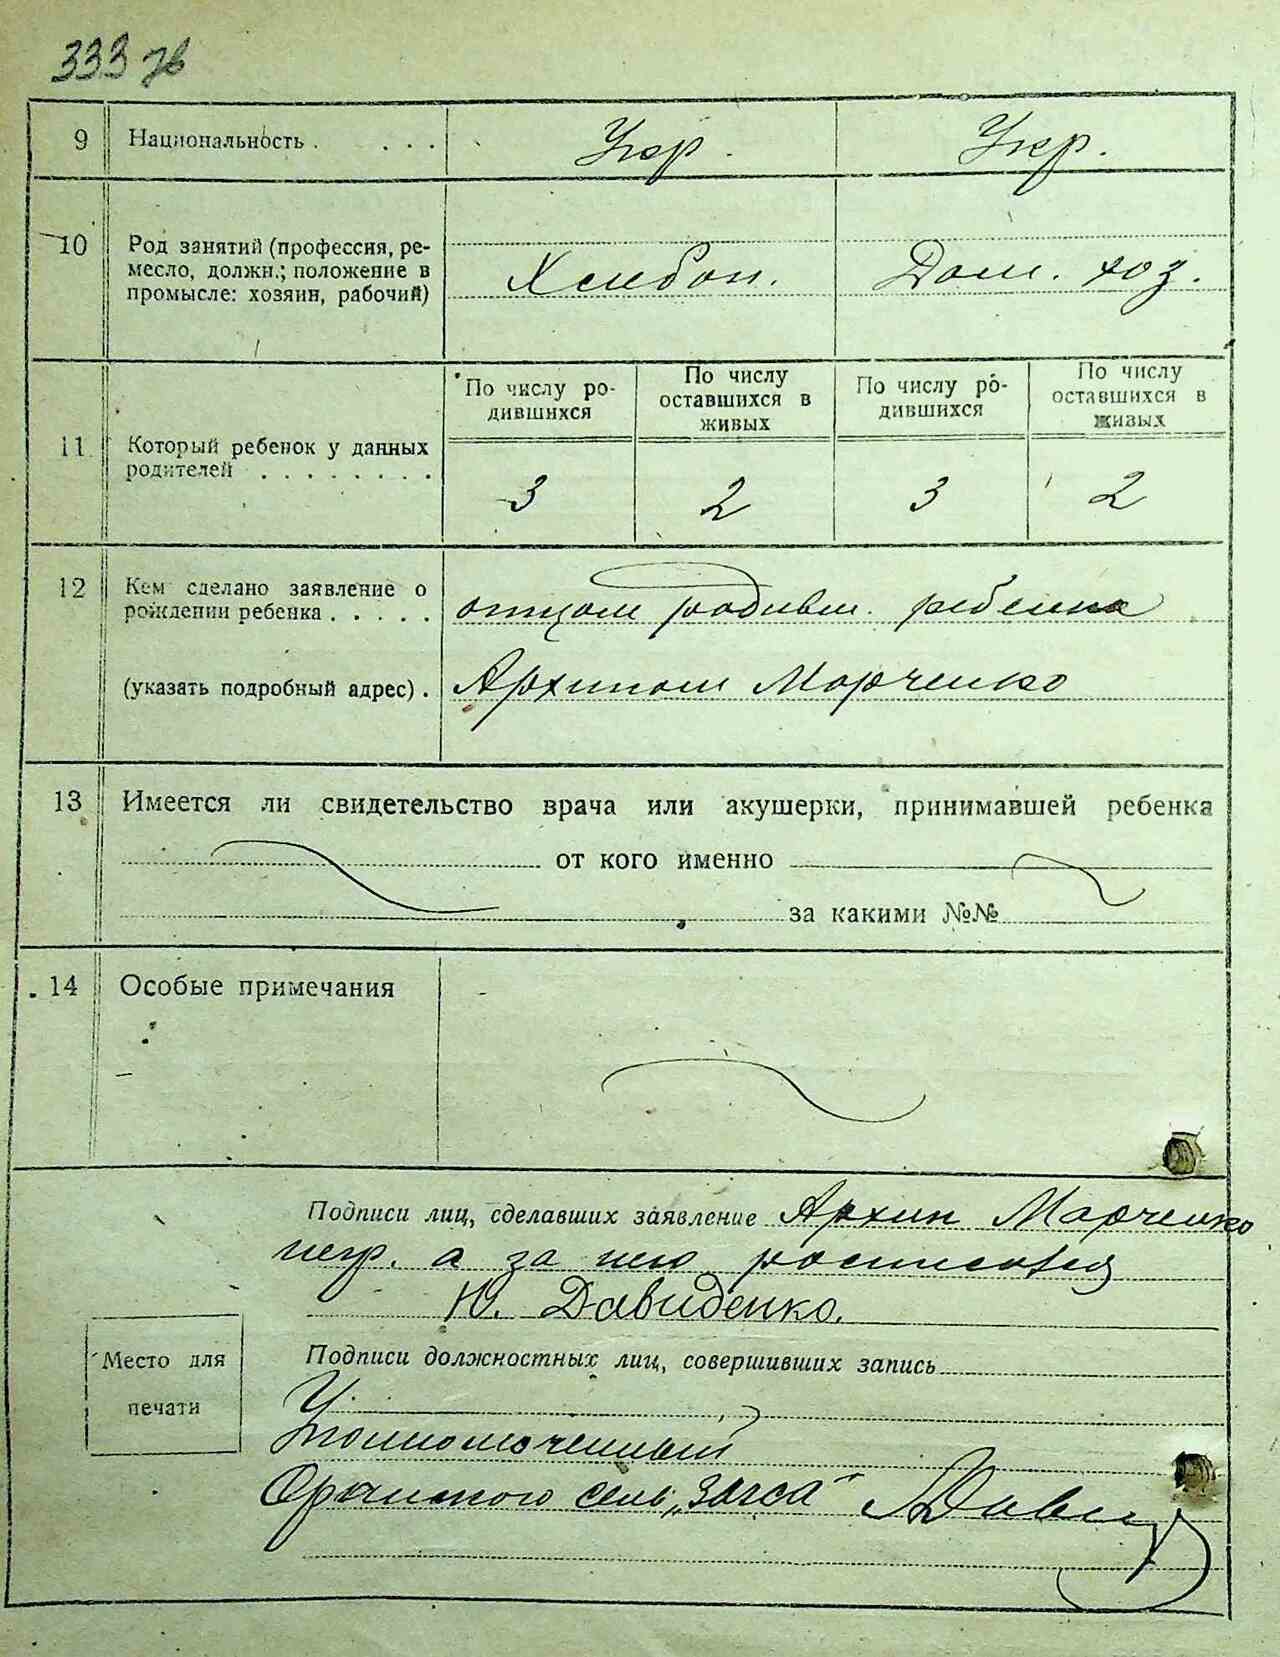 333 зв
9 Национальность . . . . Укр. Укр.
10 Род занятий (профессия, ре-
месло, должн.; положение в
промысле: хозяин, рабочий)
Хлебоп. Дом. хоз.
11 Который ребенок у данных
родителей . . . . . . . .
По числу ро-
дившихся
По числу
оставшихся в
живых
По числу ро-
дившихся
По числу
оставшихся в
живых
3 2 3 2
12 Кем сделано заявление о
рождении ребенка . . . . .
отцом родивш. ребенка
(указать подробный адрес) . Архипом Марченко
13 Имеется ли свидетельство врача или акушерки, принимавшей ребенка
от кого именно
за какими №№
14 Особые примечания
Подписи лиц, сделавших заявление Архип Марченко
негр. а за нею
Ю. Давиденко.
Место для
печати
Подписи должностных лиц, совершивших запись
Уполномоченный
сель „загса“ Дави